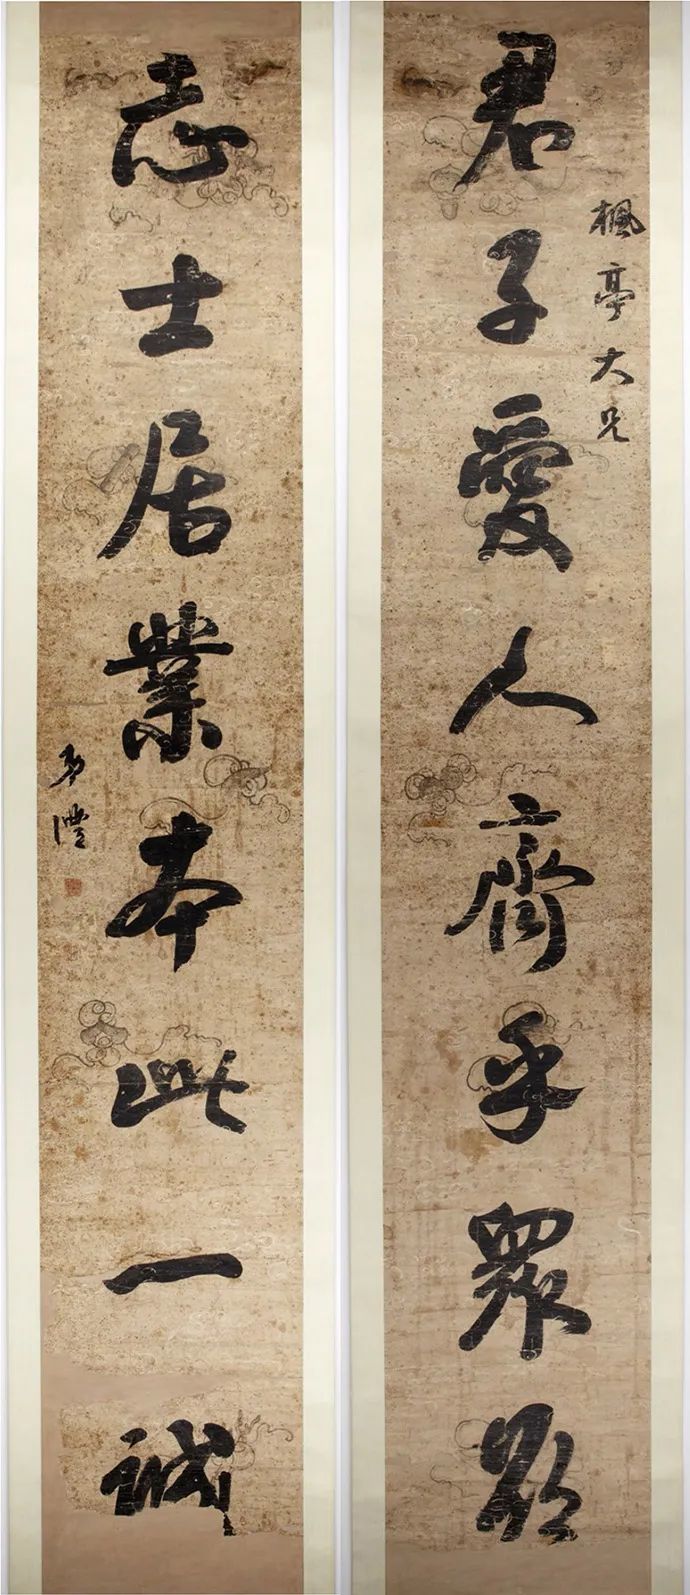 楓亭大兄
君子愛人齊乎眾欲
志士居業本此一誠